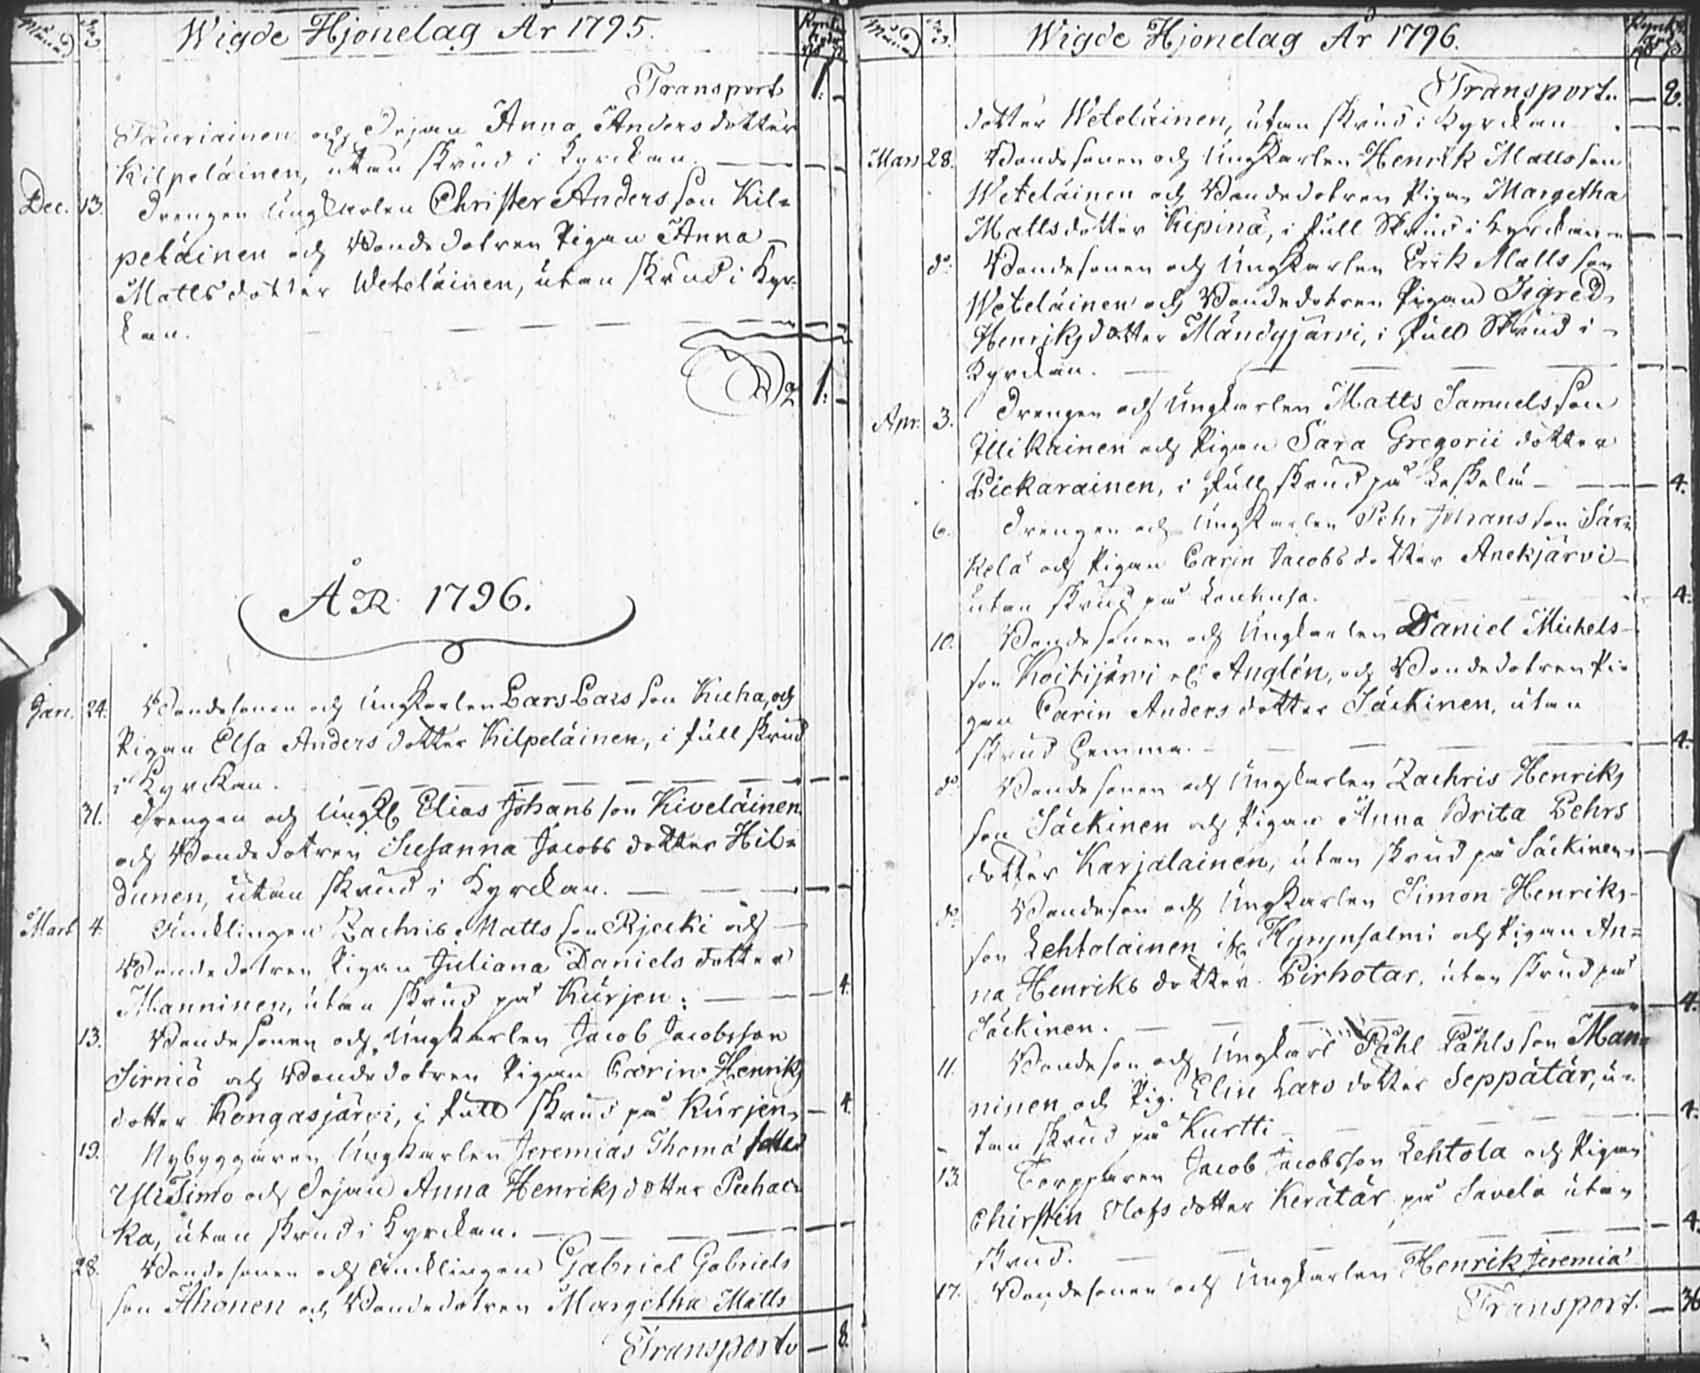 Månad
Wigde Hjonelag År 1795.
Transport 1: –
Tauriainen och Pigan Anna Anders dotter
Kilpeläinen, utan skrud i Kyrckan.
Dec. 13. Drengen Ungkarlen Christer Anders son Kil-
peläinen och Bondedotren Pigan Anna
Matts dotter Weteläinen, utan skrud i Kyr-
kan.
1: –
ÅR 1796.
Jan. 24. Bondesonen och Ungkarlen Lars Lars son Kuha, och
Pigan Elsa Anders dotter Kilpeläinen, i full skrud
i Kyrckan.
31. Drengen och Ungk. Elias Johans son Kiveläinen
och Bondedotren Susanna Jacobs dotter Hil-
dunen, utan skrud i Kyrckan.
Mart 4. Enklingen Zachris Matts son Rjecki och
Bondedotren Pigan Juliana Daniels dotter
Manninen, utan skrud på Kurjen. – 4.
13. Bondesonen och Ungkarlen Jacob Jacobsson
Sirniö och Bondedotren Pigan Carin Henriks
dotter Kongasjärvi, i full skrud på Kurjen. – 4.
19. Nybyggaren Ungkarlen Jeremias Thomæ
YliTimo och Pigan Anna Henriks dotter Puhac-
ka, utan skrud i Kyrckan.
28. Bondesonen och Enklingen Gabriel Gabriels
son Ahonen och Bondedotren Margetha Matts
Transport – 8.
Månad
Wigde Hjonelag År 1796.
Transport. – 8.
dotter Weteläinen, utan skrud i Kyrckan
Mars 28. Bondesonen och Ungkarlen Henrik Matts son
Weteläinen och Bondedotren Pigan Margetha
Matts dotter Kipinä, i full Skrud i Kyrckan
do Bondesonen och Ungkarlen Erik Matts son
Weteläinen och Bondedotren Pigan Sigred
Henriks dotter Mändyjärvi, i full Skrud i
Kyrckan.
Apr. 3. Drengen och Ungkarlen Matts Samuels son
Illikainen och Pigan Sara Gregorii dotter
Pickarainen, i full skrud på – 4.
6. Drengen och Ungkarlen Pehr Johans son Sär-
kelä och Pigan Carin Jacobs dotter Anekjärvi
utan skrud på – 4.
10. Bondesonen och Ungkarlen Daniel Michels
son Koitijärvi Anglén, och Bondedotren Pi-
gan Carin Anders dotter Säckinen, utan
skrud hemma. – 4.
do Bondesonen och Ungkarlen Zachris Henriks
son Säckinen och Pigan Anna Brita Pehrs
dotter Karjalainen, utan skrud på Säckinen.
do Bondeson och Ungkarlen Simon Henriks-
son Lehtolainen Hyrynsalmi och Pigan An-
na Henriks dotter Pirhotar, utan skrud på
Säckinen. – 4.
11. Bondeson och Ungkarl Påhl Påhls son Man-
ninen och Pig. Elin Lars dotter Seppätär, u-
tan skrud på Kurtti – 4.
13. Torpparen Jacob Jacobsson Lehtola och Pigan
Chirstin Olofs dotter Kerätär på Savela utan
skrud. – 4.
17. Bondesonen och Ungkarlen Henrik Jeremiæ
Transport. – 36